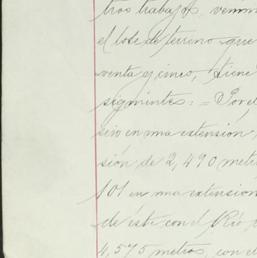 tros trabajos, venim
el lote de terreno que
venta y cinco, tiene
siguientes: = Por el
sivo en una extensión
sión de 2,490 metr
101 en una extension
de éste con el Río
4,575 metros, con el